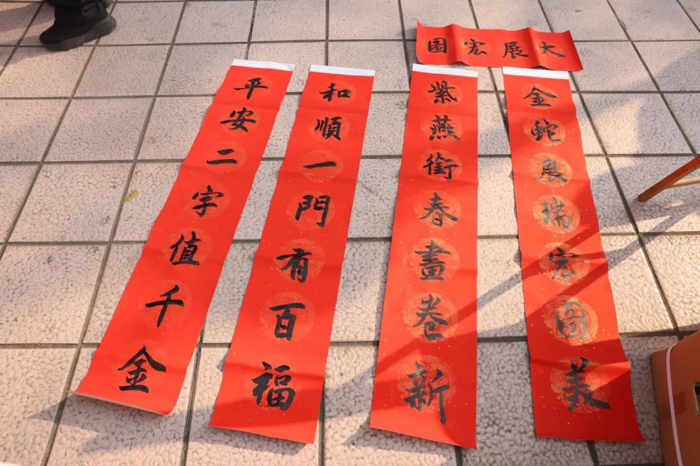 大展宏圖
金蛇展瑞宏圖美
紫燕銜春畫卷新
和順一門有百福
平安二字值千金